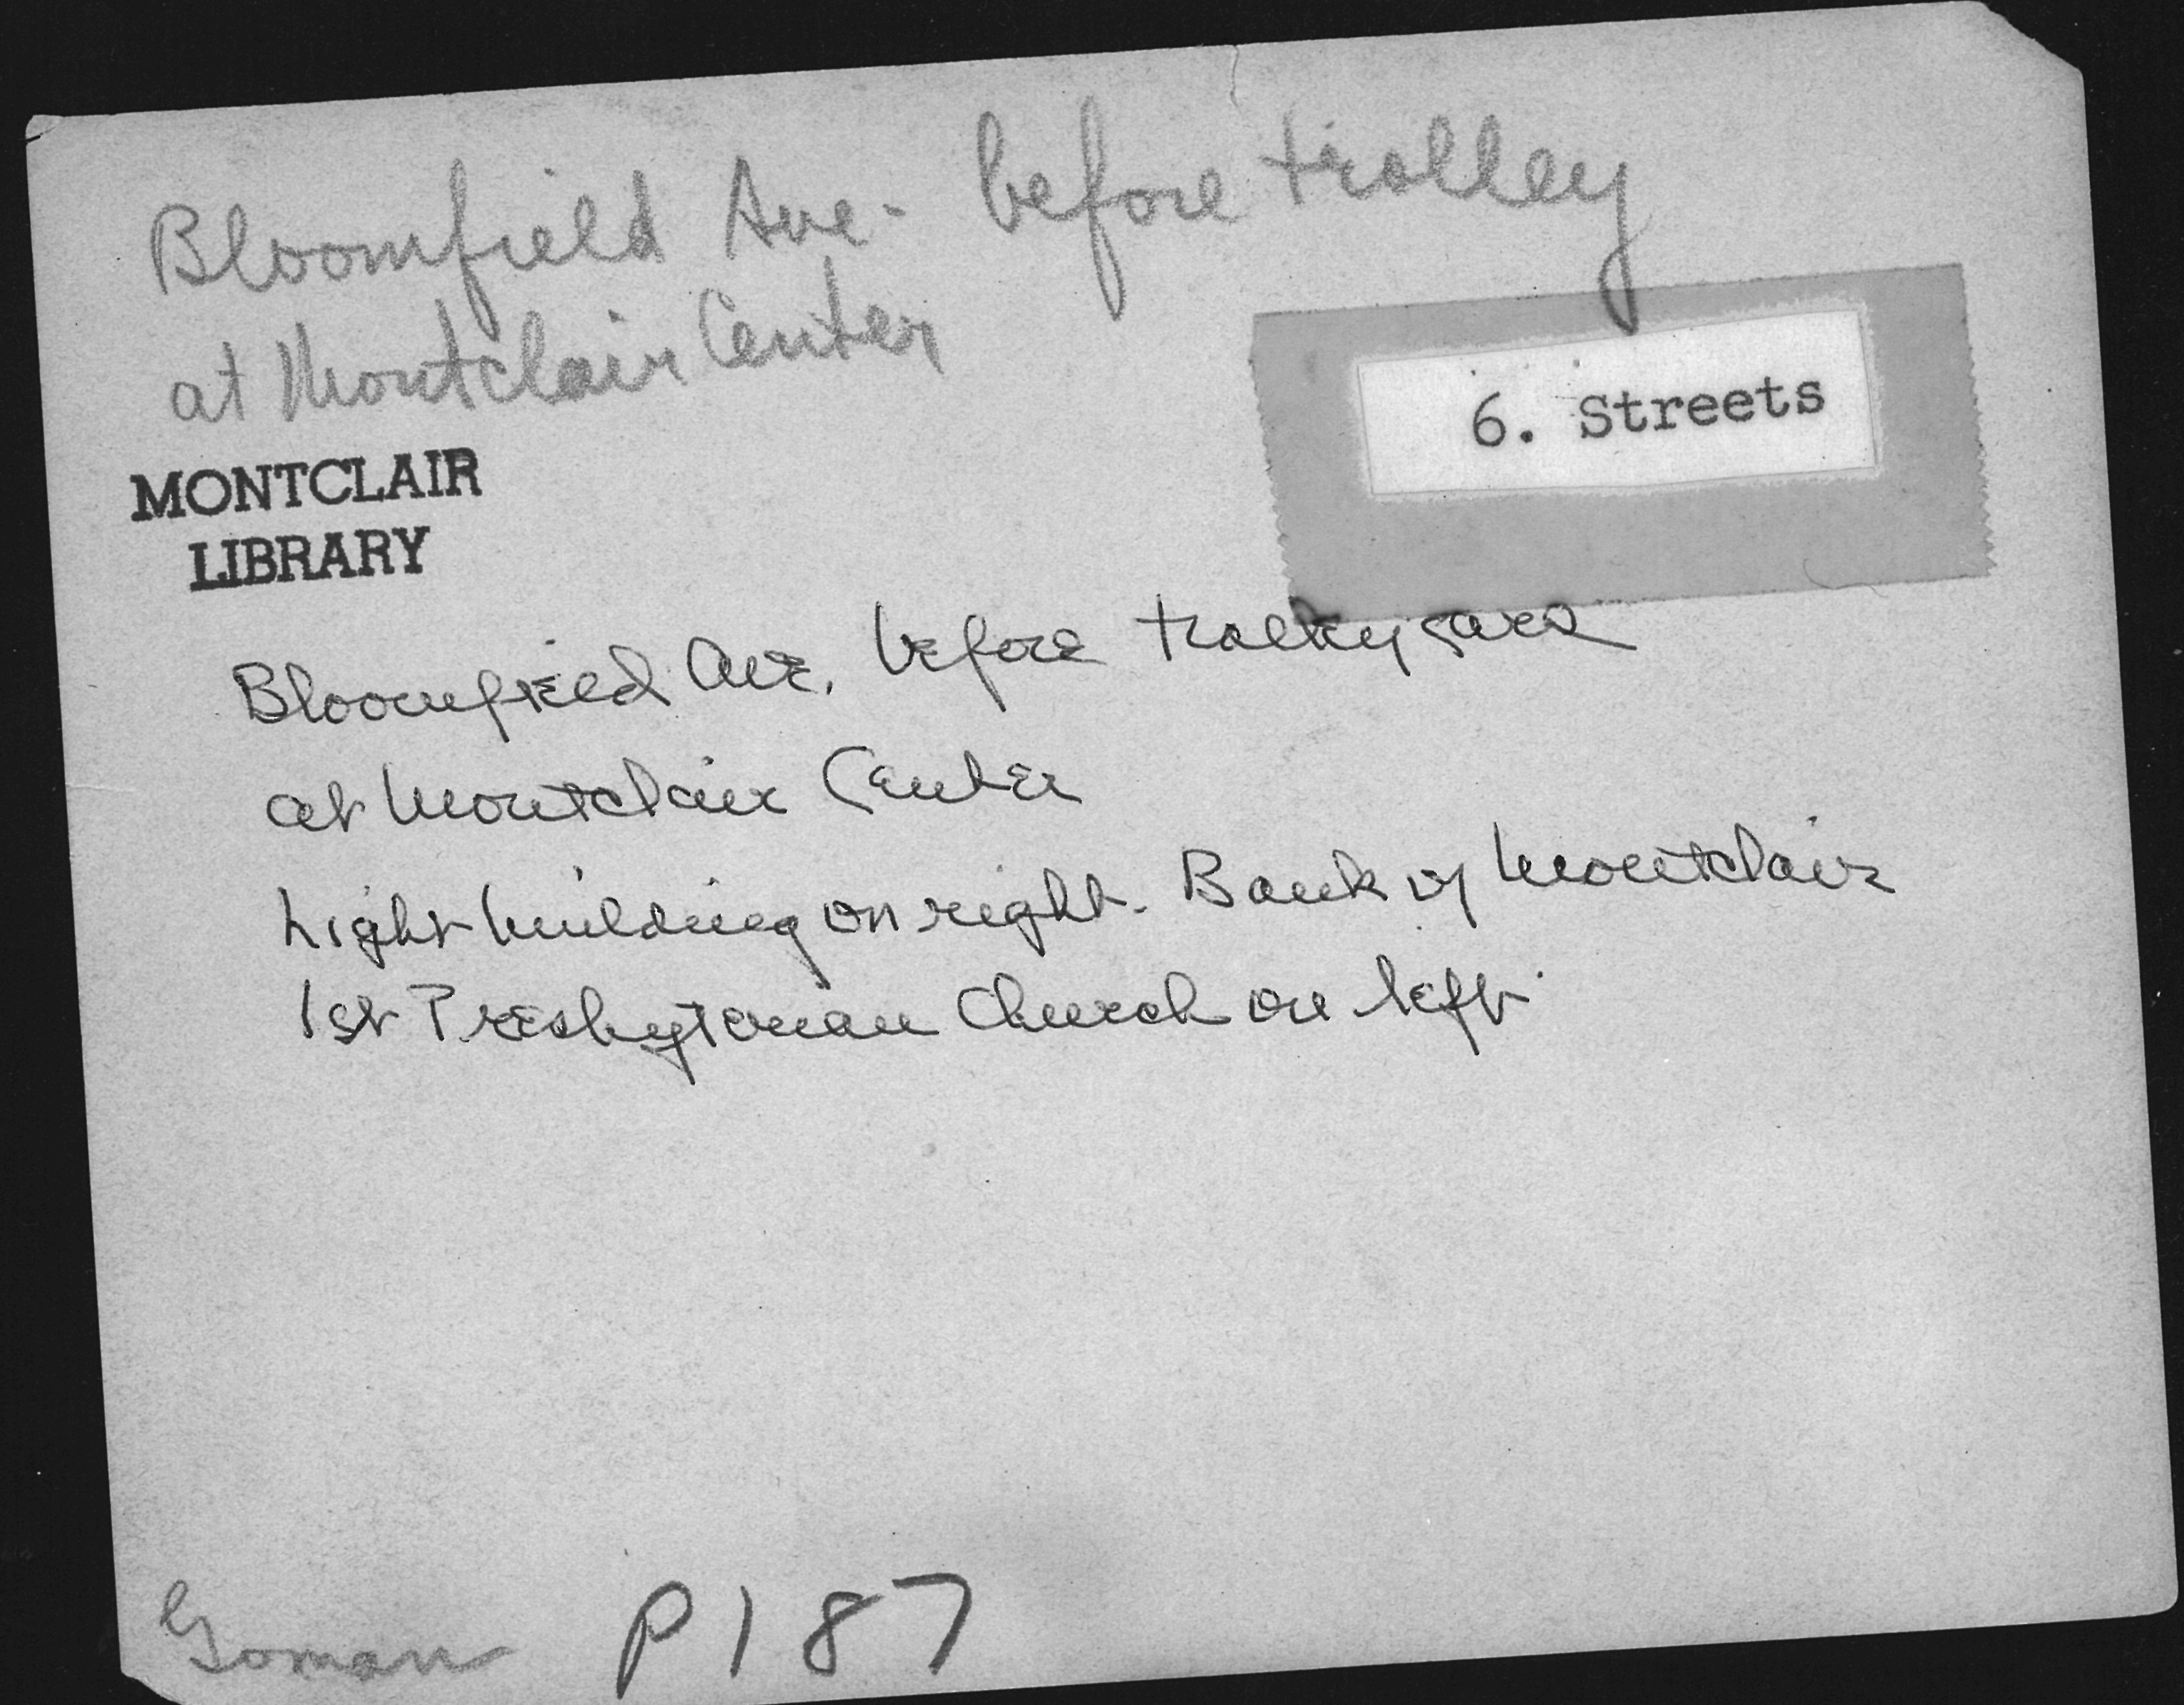 Bloomfield Ave- before trolley
at Montclair Center
6. Streets
MONTCLAIR
LIBRARY
Bloomfield Ave. before trolley cars
at Montclair Center
Light building on right. Bank of Montclair
1st Presbyterian Church on left.
Goman P187